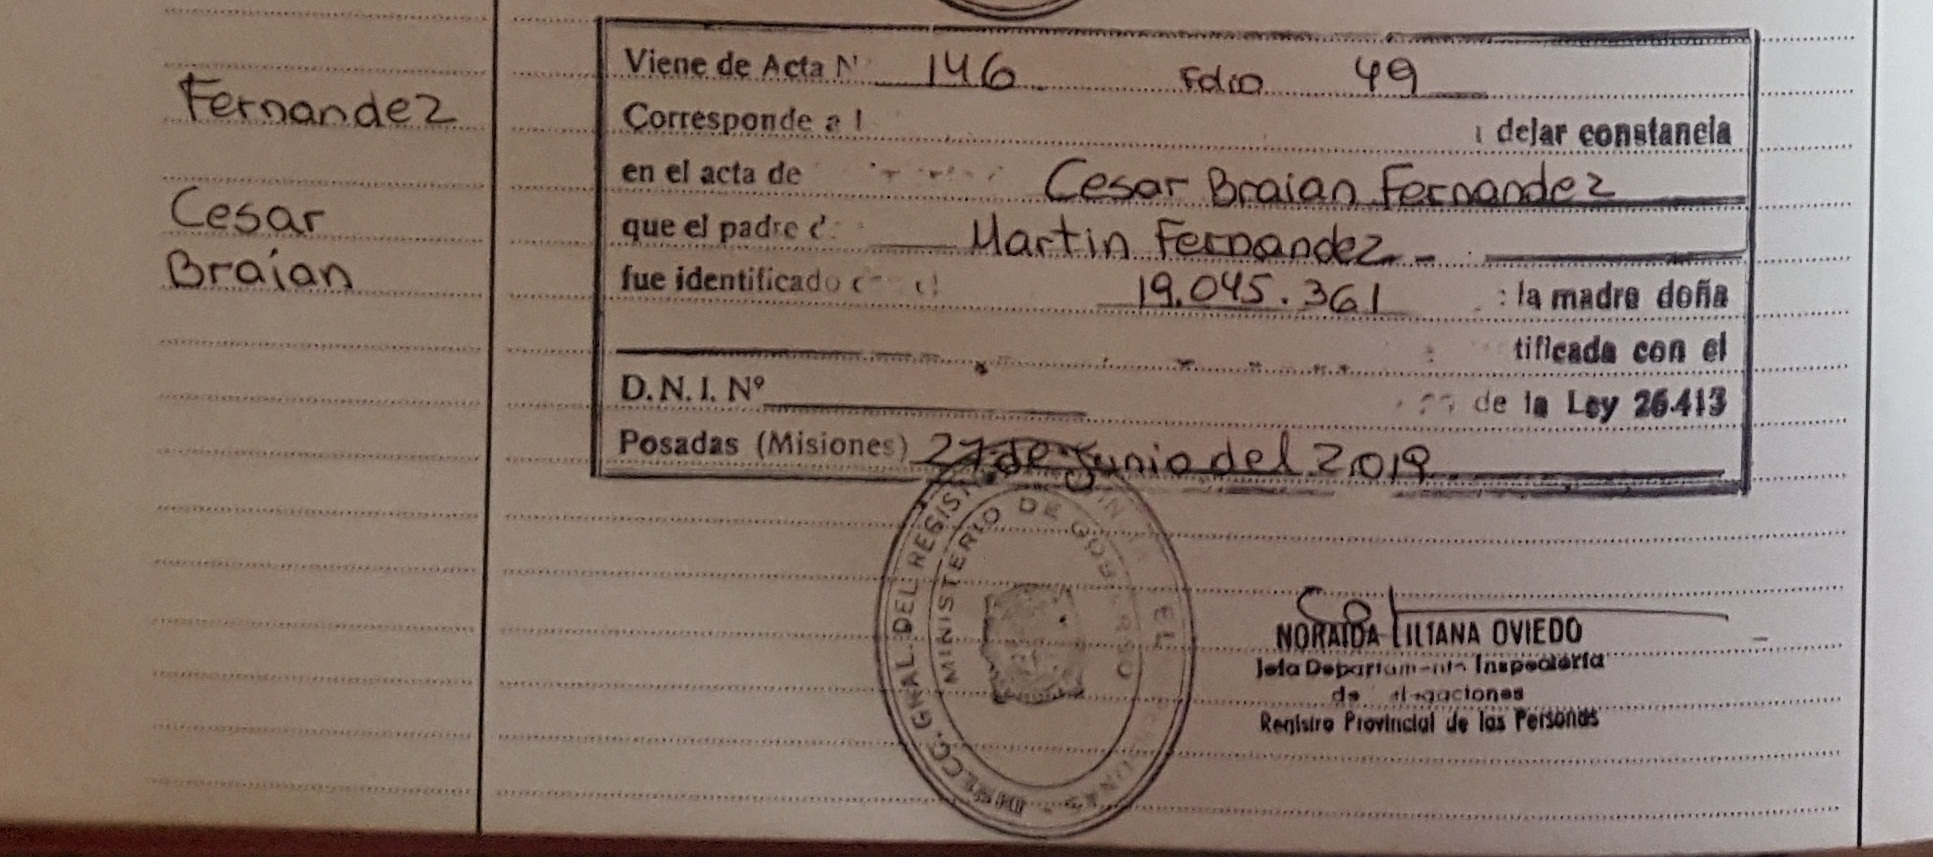 Fernandez
Cesar
Braian
Viene de Acta N° 146 Folio 49
Corresponde a dejar constancia
en el acta de Cesar Braian Fernandez
que el padre d Martin Fernandez
fue identificado 19.045.361 la madre doña
tificada con el
D.N.I. Nº de la Ley 26.413
Posadas (Misiones) 27 de Junio del 2019
DIRECC. GRAL. DEL REGIST
MINISTERIO DE GOBIERNO
NORAIDA LILIANA OVIEDO
Jefa Departamento Inspectoría
de
Registro Provincial de las Personas